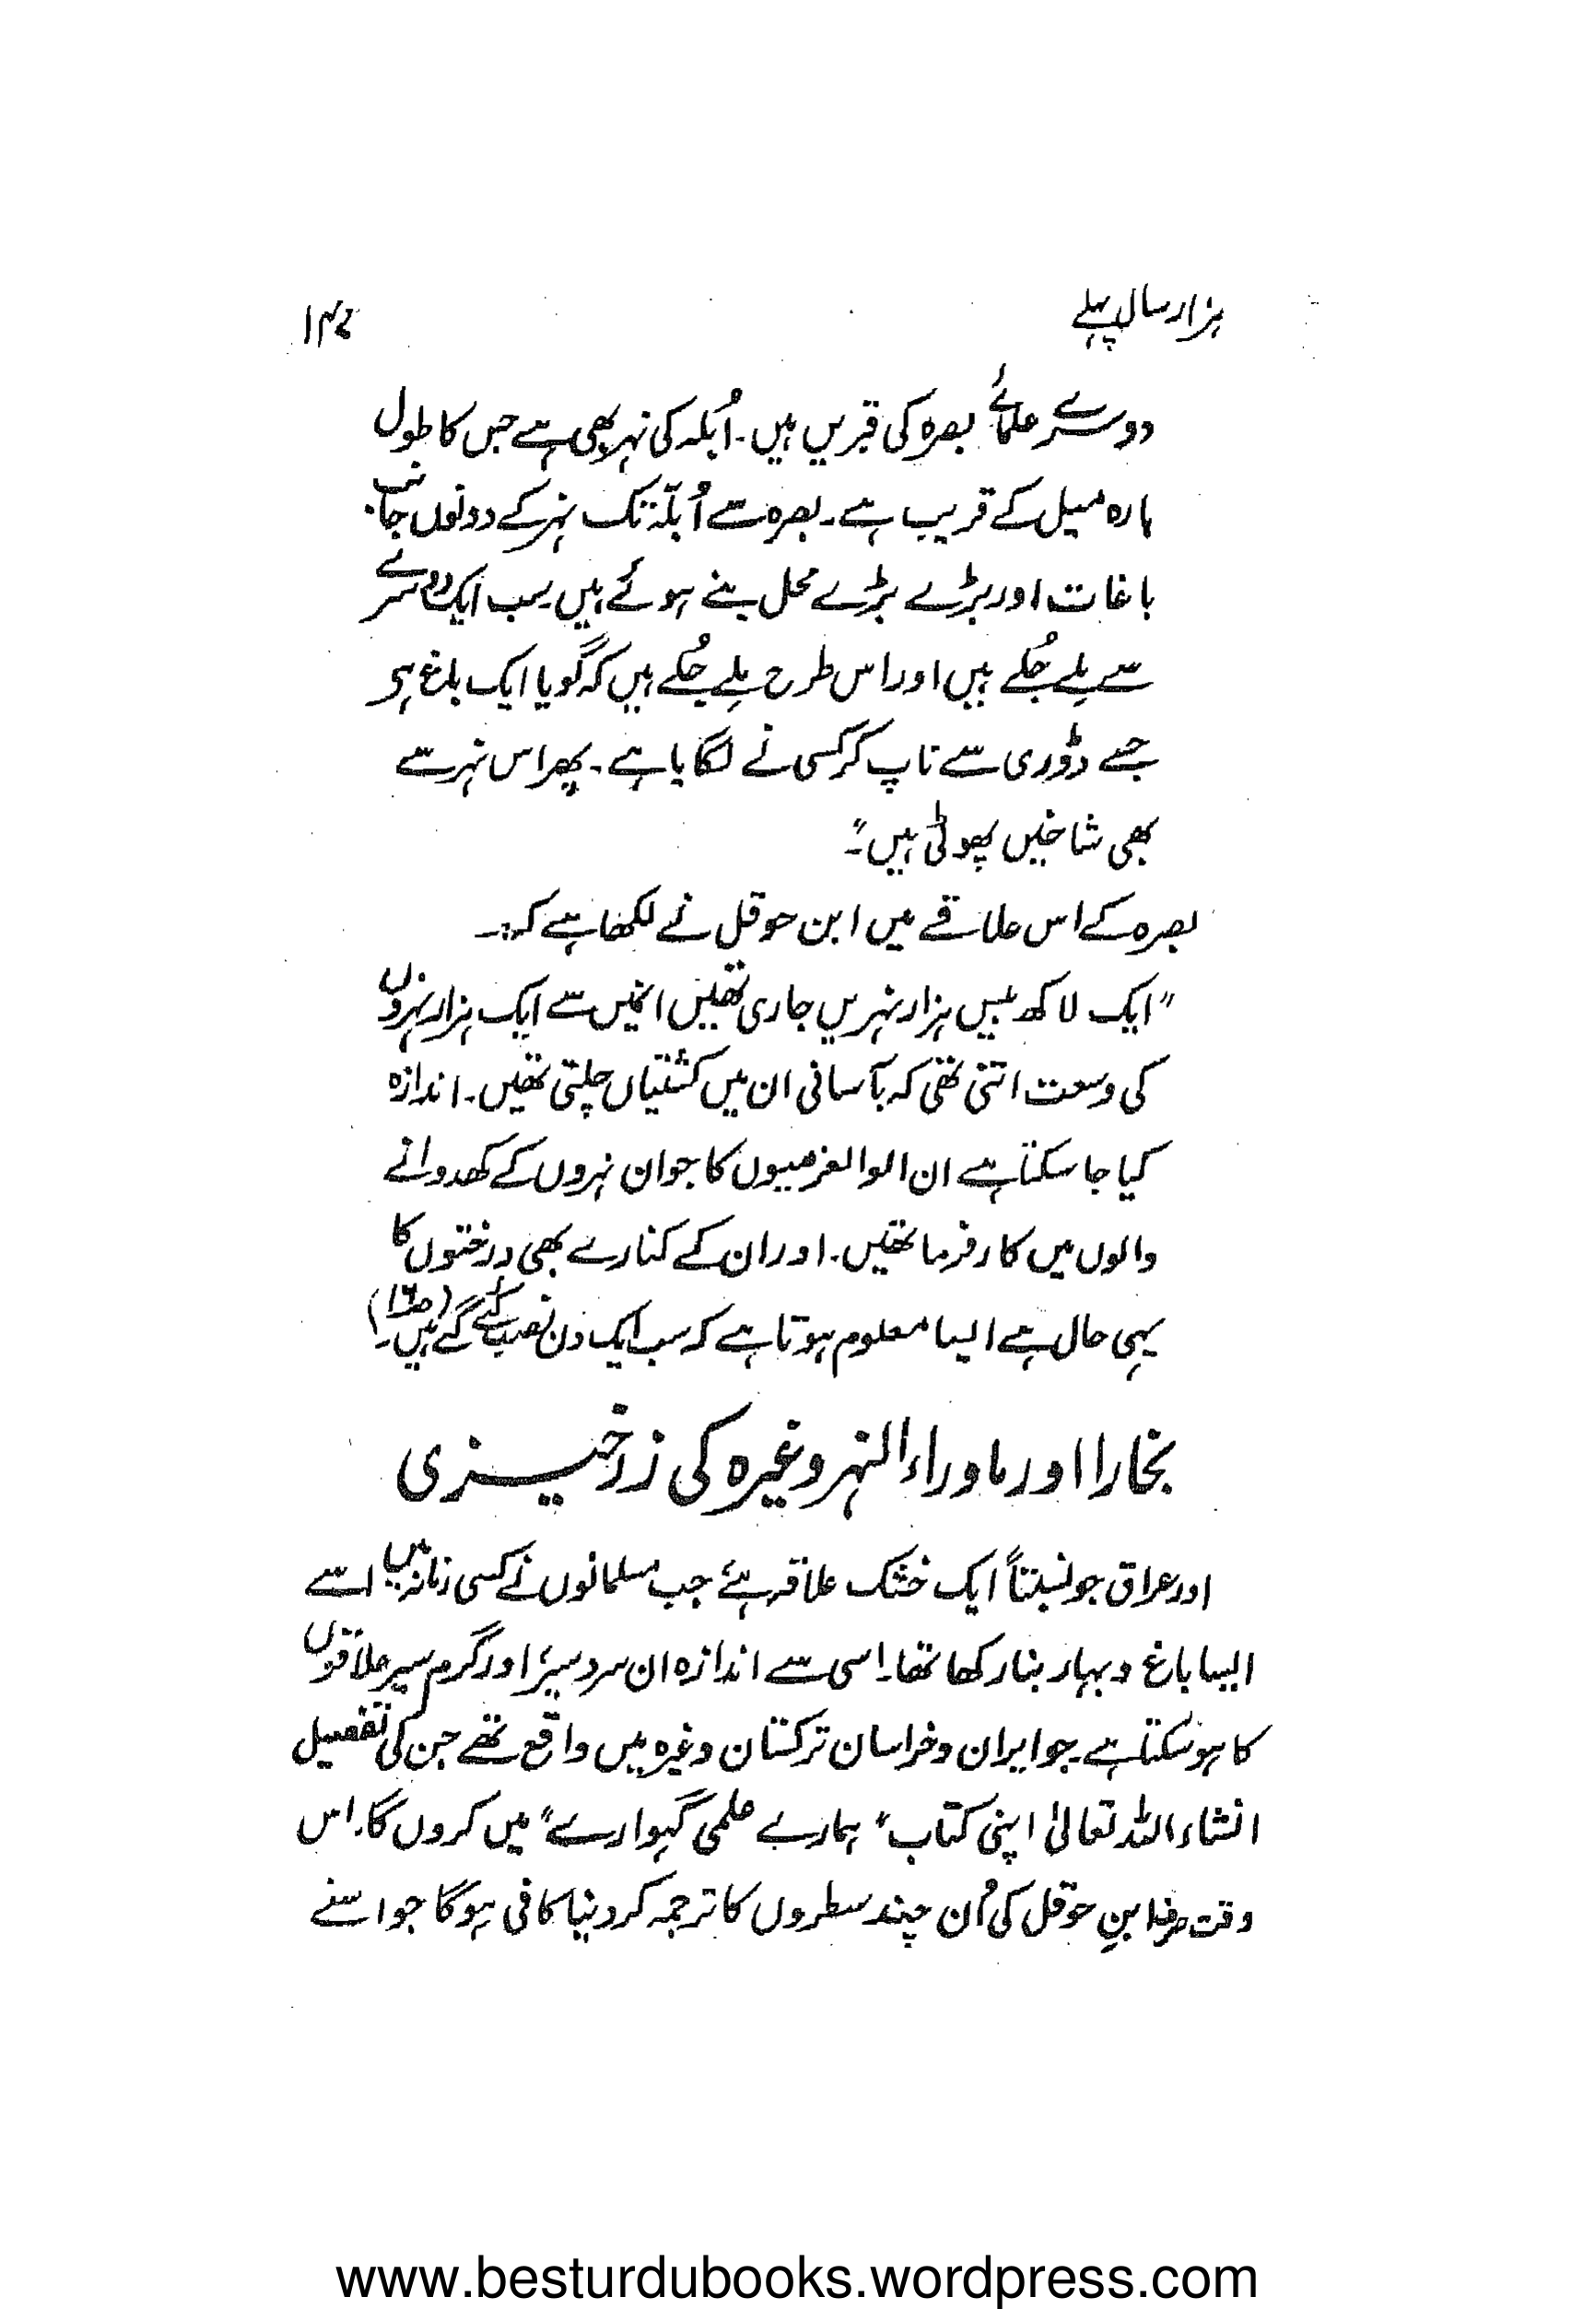 ہزار سال پہلے
۱۴۷
دوسرے علمائے بصرہ کی قبریں ہیں۔ اُبلہ کی نہر بھی ہے جس کا طول
بارہ میل کے قریب ہے۔ بصرہ سے اُبلّہ تک نہر کے دونوں جانب
باغات اور بڑے بڑے محل بنے ہوئے ہیں سب ایک دوسرے
سے مِلے جُلے ہیں اور اس طرح مِلے جُلے ہیں کہ گویا ایک باغ ہی
جسے ڈوری سے ناپ کر کسی نے لگایا ہے۔ پھر اس نہر سے
بھی شاخیں پھوٹی ہیں"۔
بصرہ کے اس علاقے میں ابن حوقل نے لکھا ہے کہ:۔
"ایک لاکھ بیس ہزار نہریں جاری تھیں انمیں سے ایک ہزار نہروں
کی وسعت اتنی تھی کہ بآسانی ان میں کشتیاں چلتی تھیں۔ اندازہ
کیا جا سکتا ہے ان الوالعزمیوں کا جو ان نہروں کے کھدوانے
والوں میں کارفرما تھیں۔ اور ان کے کنارے بھی درختوں کا
یہی حال ہے ایسا معلوم ہوتا ہے کہ سب ایک دن نصب کئے گے ہیں۔ (ص۱۶۰)
بخارا اور ماوراء النہر وغیرہ کی زرخیزی
اور عراق جو نسبتاً ایک خشک علاقہ ہے، جب مسلمانوں نے کسی زمانہ میں اسے
ایسا باغ و بہار بنا رکھا تھا۔ اسی سے اندازہ ان سرد سیر، اور گرم سیر علاقوں
کا ہو سکتا ہے۔ جو ایران و خراسان ترکستان وغیرہ میں واقع تھے جن کی تفصیل
انشاء اللہ تعالیٰ اپنی کتاب "ہمارے علمی گہوارے" میں کروں گا۔ اس
وقت صرف ابنِ حوقل کی اُن چند سطروں کا ترجمہ کر دینا کافی ہوگا جو اسنے
www.besturdubooks.wordpress.com